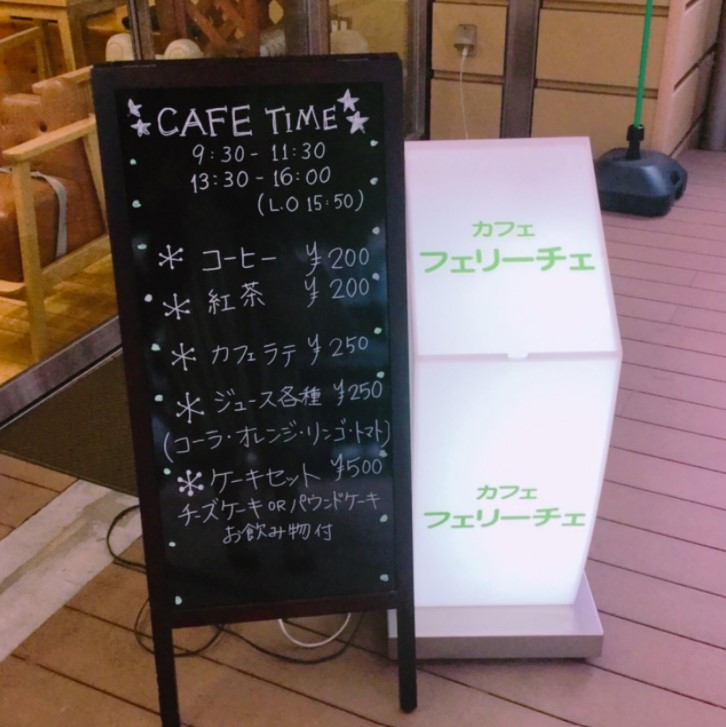 CAFE TIME
9:30 - 11:30
13:30 - 16:00
(L.O 15:50)
コーヒー ¥200
紅茶 ¥200
カフェラテ ¥250
ジュース各種 ¥250
(コーラ・オレンジ・リンゴ・トマト)
ケーキセット ¥500
チーズケーキ OR パウンドケーキ
お飲み物付
カフェ
フェリーチェ
カフェ
フェリーチェ